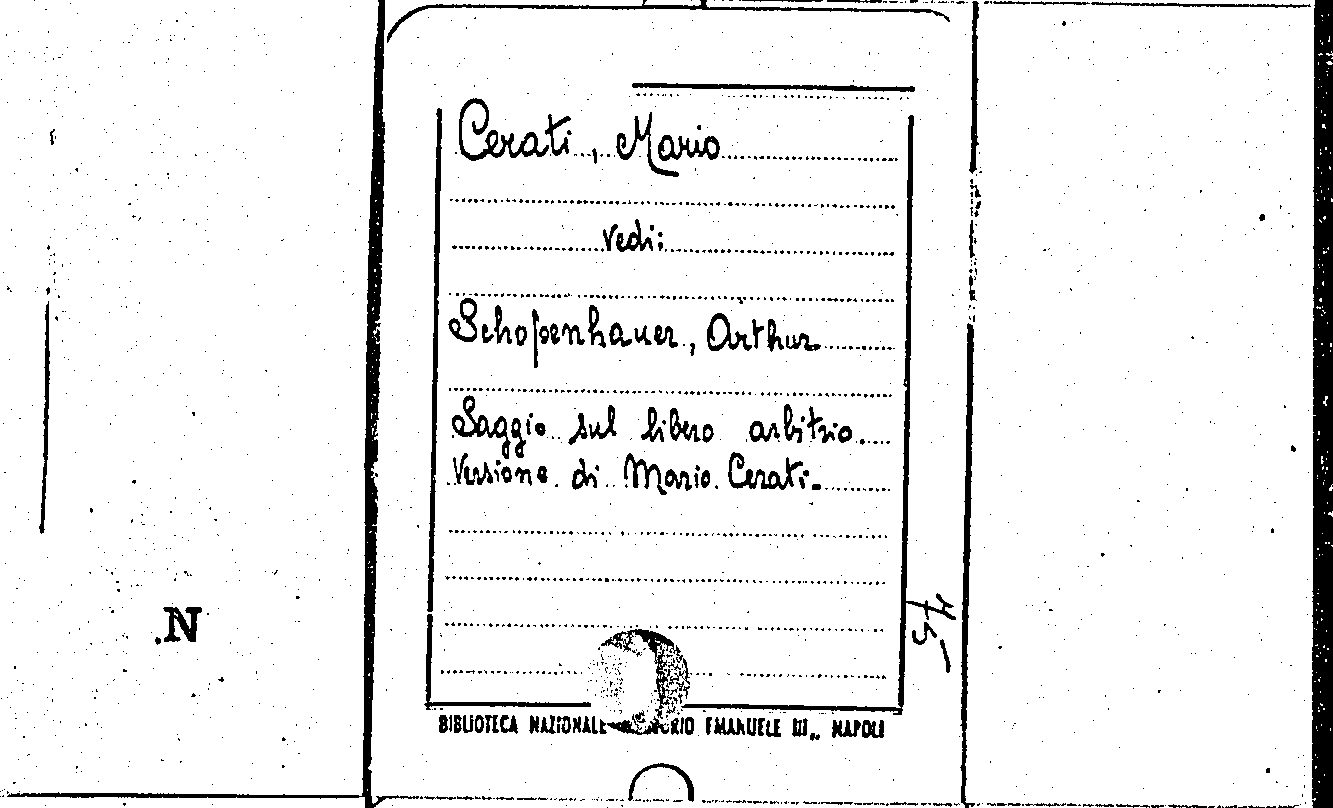 Cerati, Mario
Vedi:
Schopenhauer, Arthur
Saggio sul libero arbitrio.
Versione di Mario Cerati.
BIBLIOTECA NAZIONALE EMANUELE III,, NAPOLI
.N